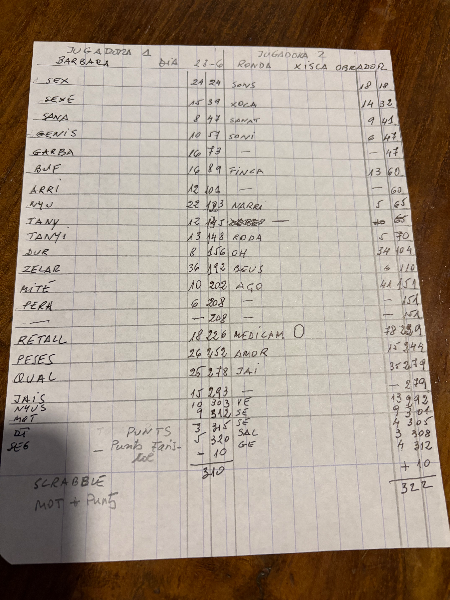 JUGADORA 1 JUGADORA 2
BARBARA DIA 23-6 RONDA XISCA OBRADOR
SEX 24 24 SONS 18 18
SEXE 15 39 XOCA 14 32
SANA 8 47 SANAT 9 41
GENIS 10 57 SONI 6 47
GARBA 16 73 — — 47
BUF 16 89 FINCA 13 60
ARRI 12 101 — — 60
NYU 22 123 NARRI 5 65
TANY 12 135 — 65
TANYI 13 148 RODA 5 70
DUR 8 156 OH 34 104
ZELAR 36 192 BEUS 6 110
MITE 10 202 AGO 41 151
PERA 6 208 — — 151
— — 208 — — 151
RETALL 18 226 MEDICAM O 78 229
PESES 26 252 AMOR 15 244
QUAL 25 278 JAI 35 279
JAIS 15 293 — — 279
NYUS 10 303 VE 13 292
MOT 9 312 SE 9 301
DI 3 315 SE 4 305
SEG 5 320 SAL 3 308
PUNTS - 10 GE 4 312
— Punts Faristol 310 + 10
SCRABBLE 322
MOT + Punts